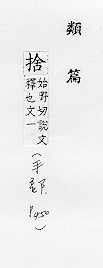 類篇
捨
始野切說文
釋也文一
(手部 P450)